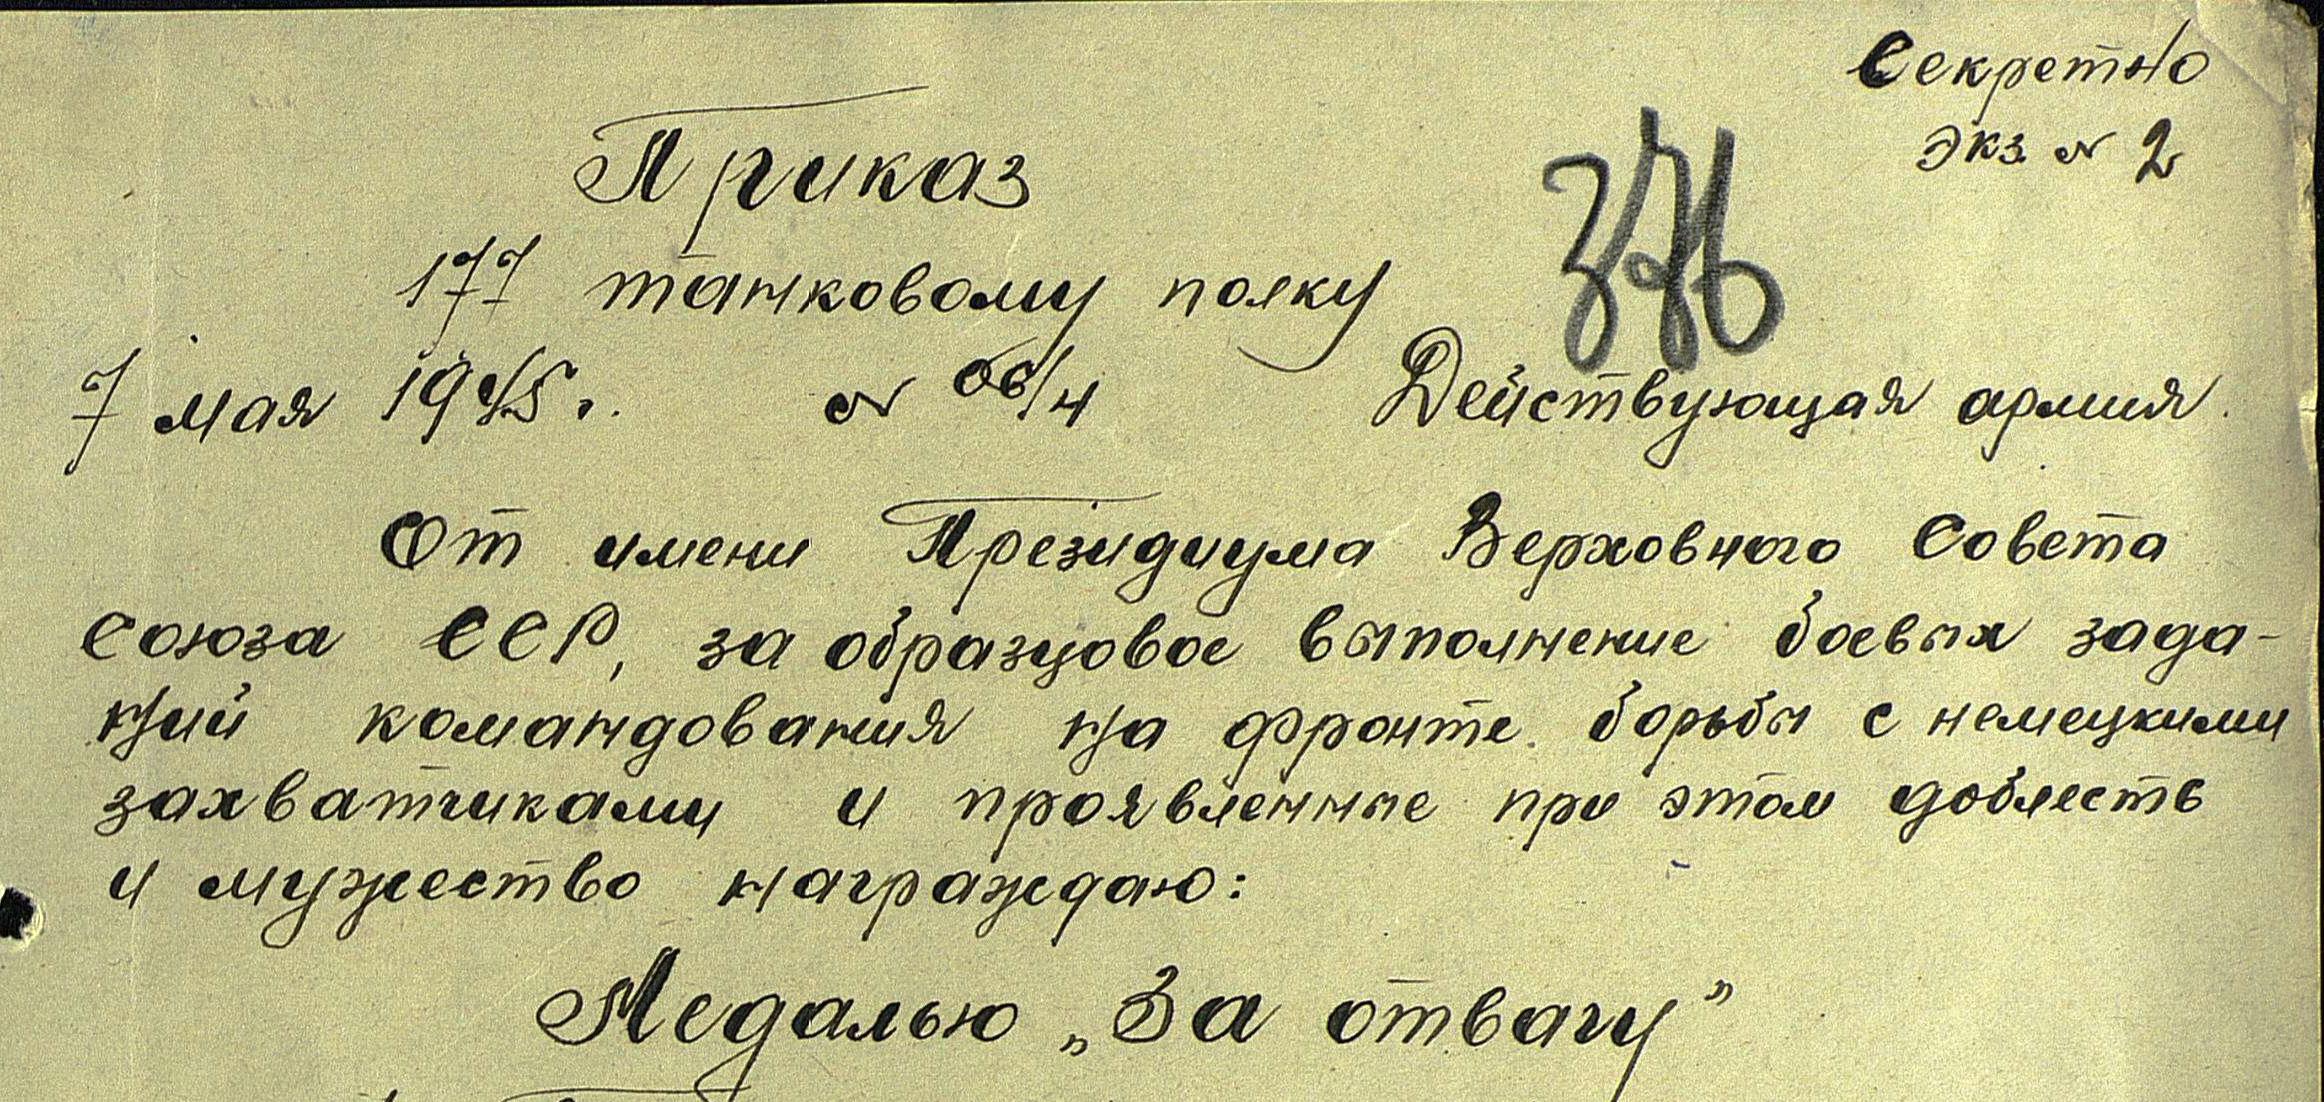 Секретно
экз № 2
Приказ
376
177 танковому полку
7 мая 1945 г. № 06/н Действующая армия.
От имени Президиума Верховного Совета
Союза ССР, за образцовое выполнение боевых зада-
ний командования на фронте борьбы с немецкими
захватчиками и проявленные при этом доблесть
и мужество награждаю:
Медалью „За отвагу”